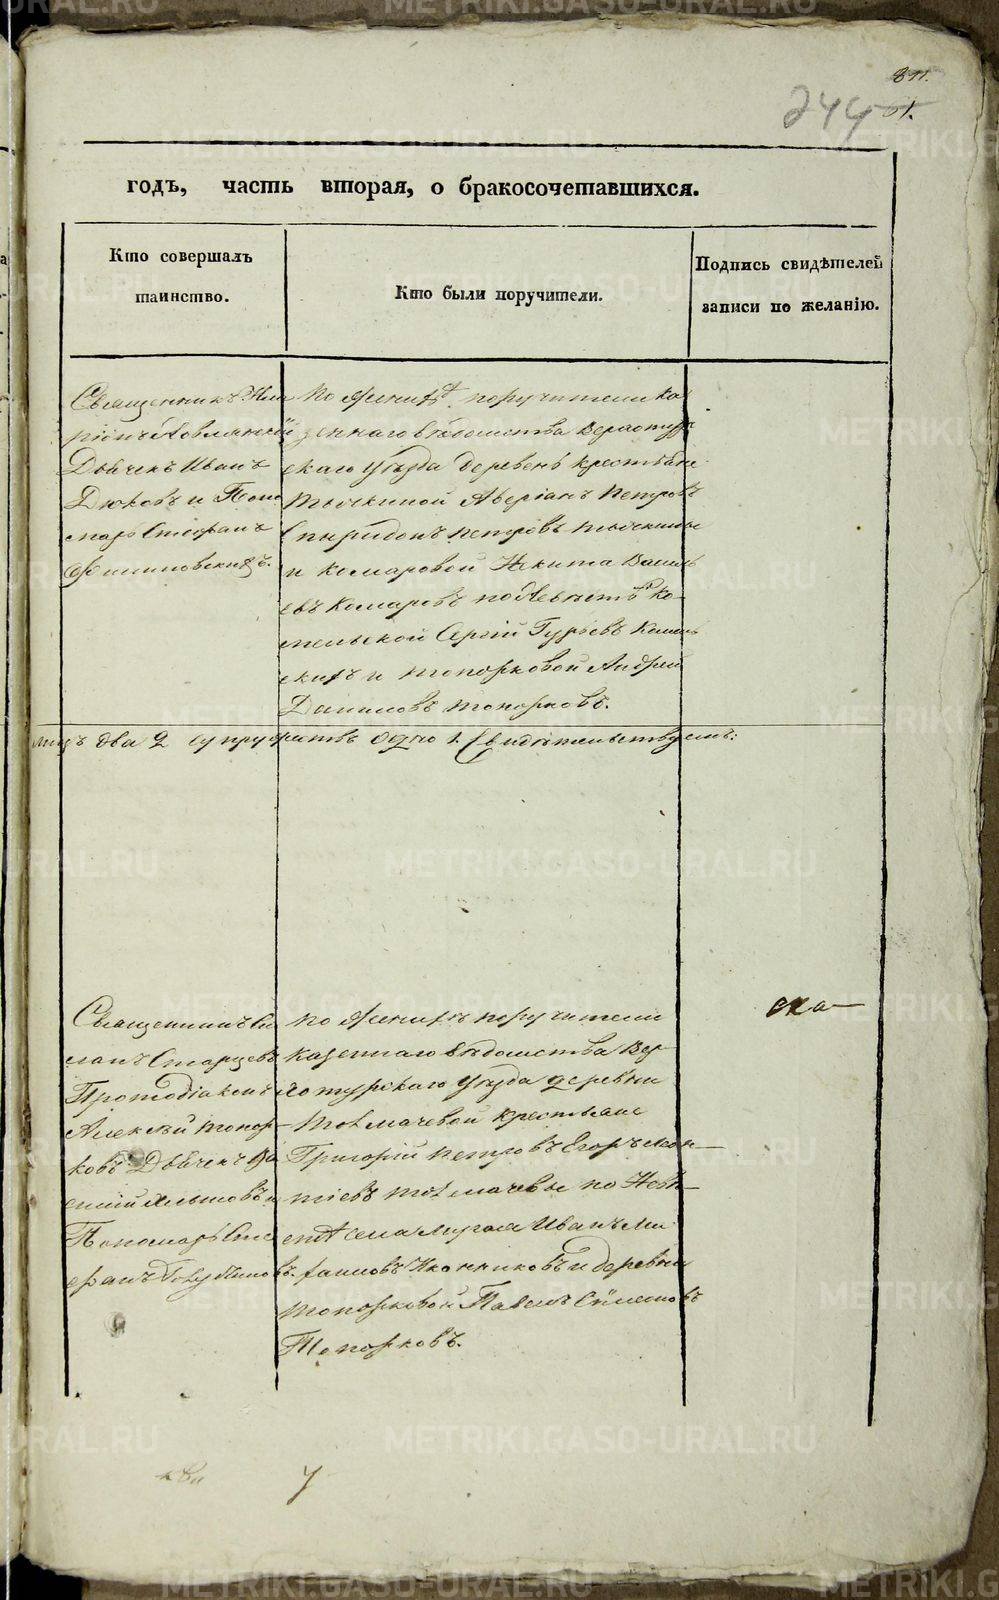 811.
244
51.
годъ, часть вторая, о бракосочетавшихся.
Кто совершалъ
таинство.
Кто были поручители.
Подпись свидѣтелей
записи по желанію.
Священникъ Ила
ріонъ
Дьячекъ Иванъ
Дюковъ и Поно
марь Стефанъ
По женихѣ поручители ка
зеннаго вѣдомства Верхотур
скаго уѣзда деревень крестьяне
Тычкиной Аверіанъ Петровъ
Спиридонъ Петровъ Тычкины
и Комаровой Никита Василь
евъ Комаровъ по невѣстѣ Ко
мельской Сергій Гурьевъ Комель
скихъ и Топорковой Андрей
Даниловъ Топорковъ.
лицъ два 2 супружествъ одно 1. Свидѣтельствуемъ:
Священникъ Си
ланъ Старцевъ
Протодіаконъ
Алексѣй Топор
ковъ Дьячекъ Ва
силій и
Пономарь Сте
фанъ Голубчиковъ.
По женихѣ поручители
казеннаго вѣдомства Вер
хотурскаго уѣзда деревни
Толмачевой крестьяне
Григорій Петровъ Егоръ Леон
тіевъ Толмачевы по невѣ
стѣ села Мугая Иванъ Ми
хаиловъ Иконниковъ и деревни
Топорковой Павелъ Симеоновъ
Топорковъ.
ска
METRIKI.GASO-URAL.RU